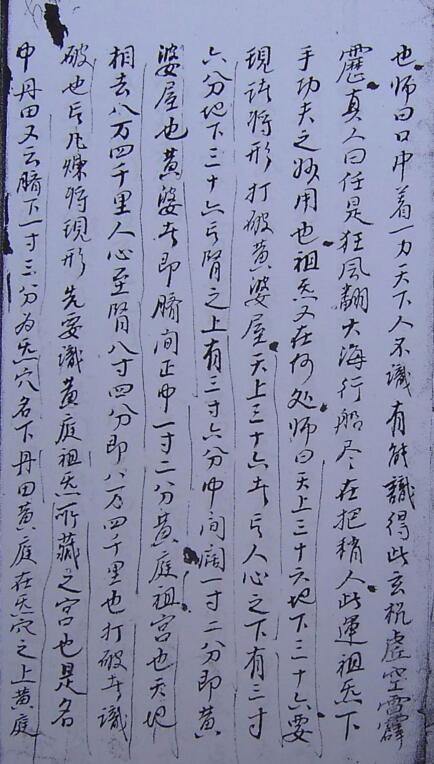 也师曰口中着一力天下人不識有能識得此玄机虚空霹
靂真人曰任是狂风翻大海行船尽在把稍人此運祖炁下
手功夫之妙用也祖炁又在何处师曰天上三十六地下三十六要
現諸将形打破黄婆屋天上三十六者言人心之下有三寸
六分地下三十六言腎之上有三寸六分中间阔一寸二分即黄
婆屋也黄婆者即臍间正中一寸二分黄庭祖宫也天地
相去八万四千里人心至腎八寸四分即八万四千里也打破者識
破也言凡煉将現形先要識黄庭祖炁所藏之宫也是名
中丹田又云臍下一寸三分为炁穴名下丹田黄庭在炁穴之上黄庭